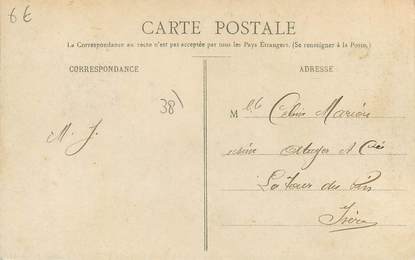 6€
CARTE POSTALE
La Correspondance au recto n'est pas acceptée par tous les Pays Étrangers. (Se renseigner à la Poste.)
CORRESPONDANCE
ADRESSE
38)
M. J.
Mlle Marion
La Tour du Pin
Isère